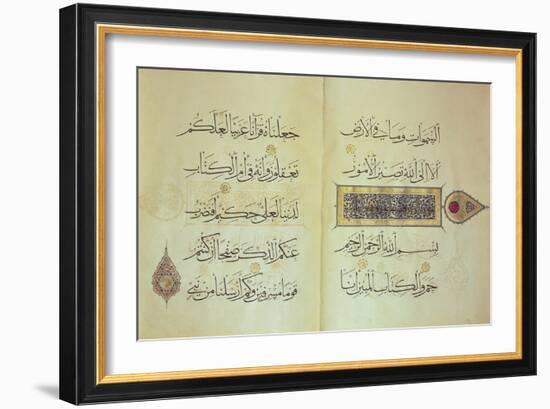 السموات وما في الارض
الا الى الله تصير الامور
بسم الله الرحمن الرحيم
حم والكتاب المبين انا
جعلناه قرآنا عربيا لعلكم
تعقلون وانه في ام الكتاب
لدينا لعلي حكيم افنضرب
عنكم الذكر صفحا ان كنتم
قوما مسرفين وكم ارسلنا من نبي